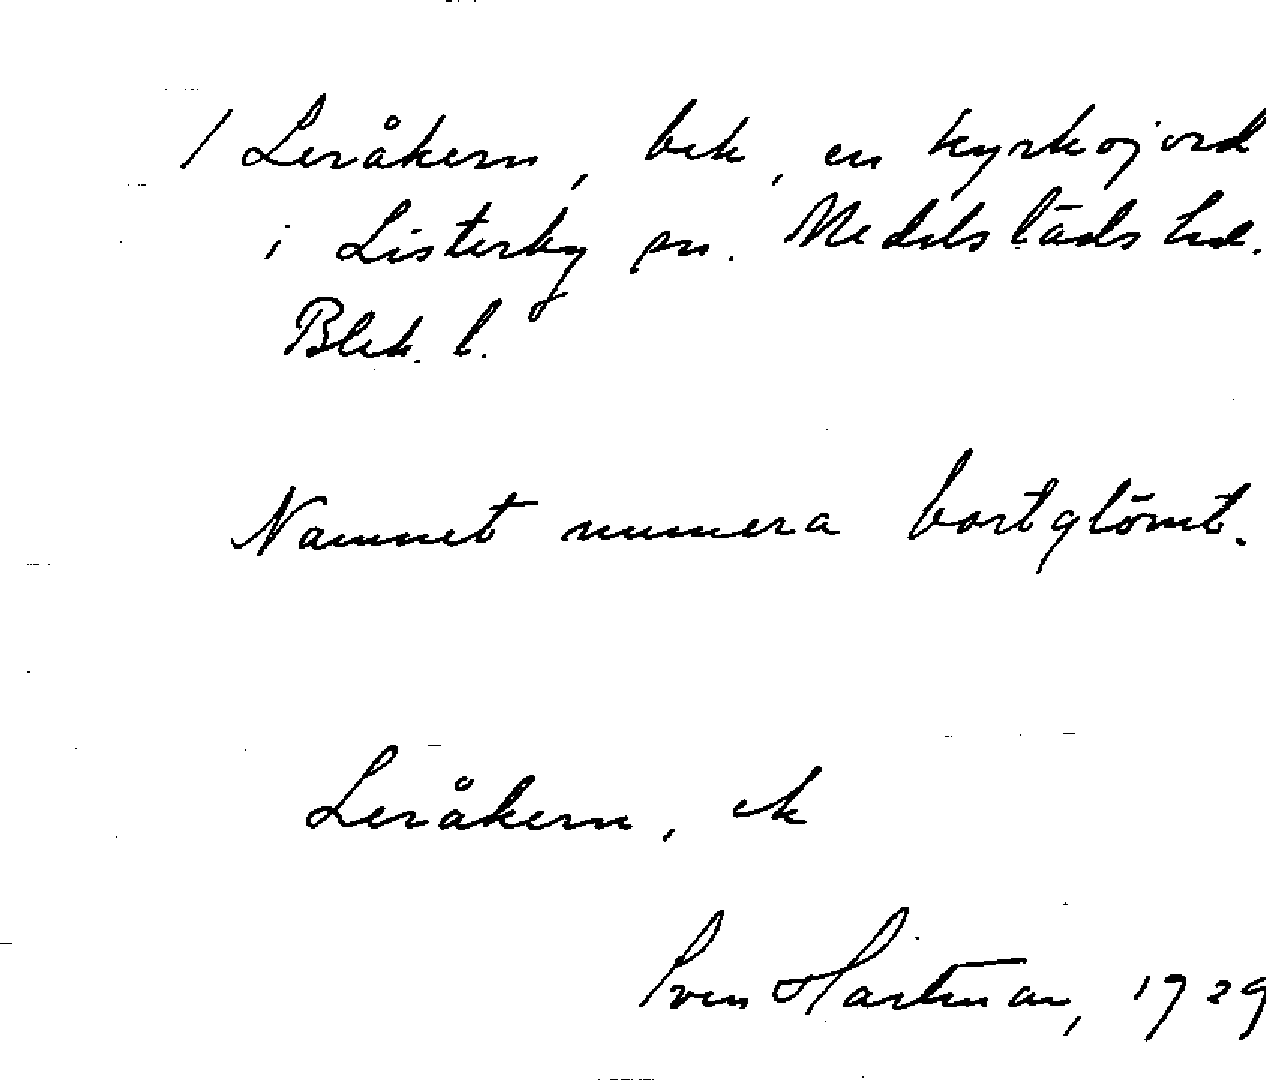 / Leråkern, bek, en kyrkojord
i Listerby sn. Medelstads hd.
Blek. l.
Namnet numera bortglömt.
Leråkern, ek
Sven Hartman, 1929